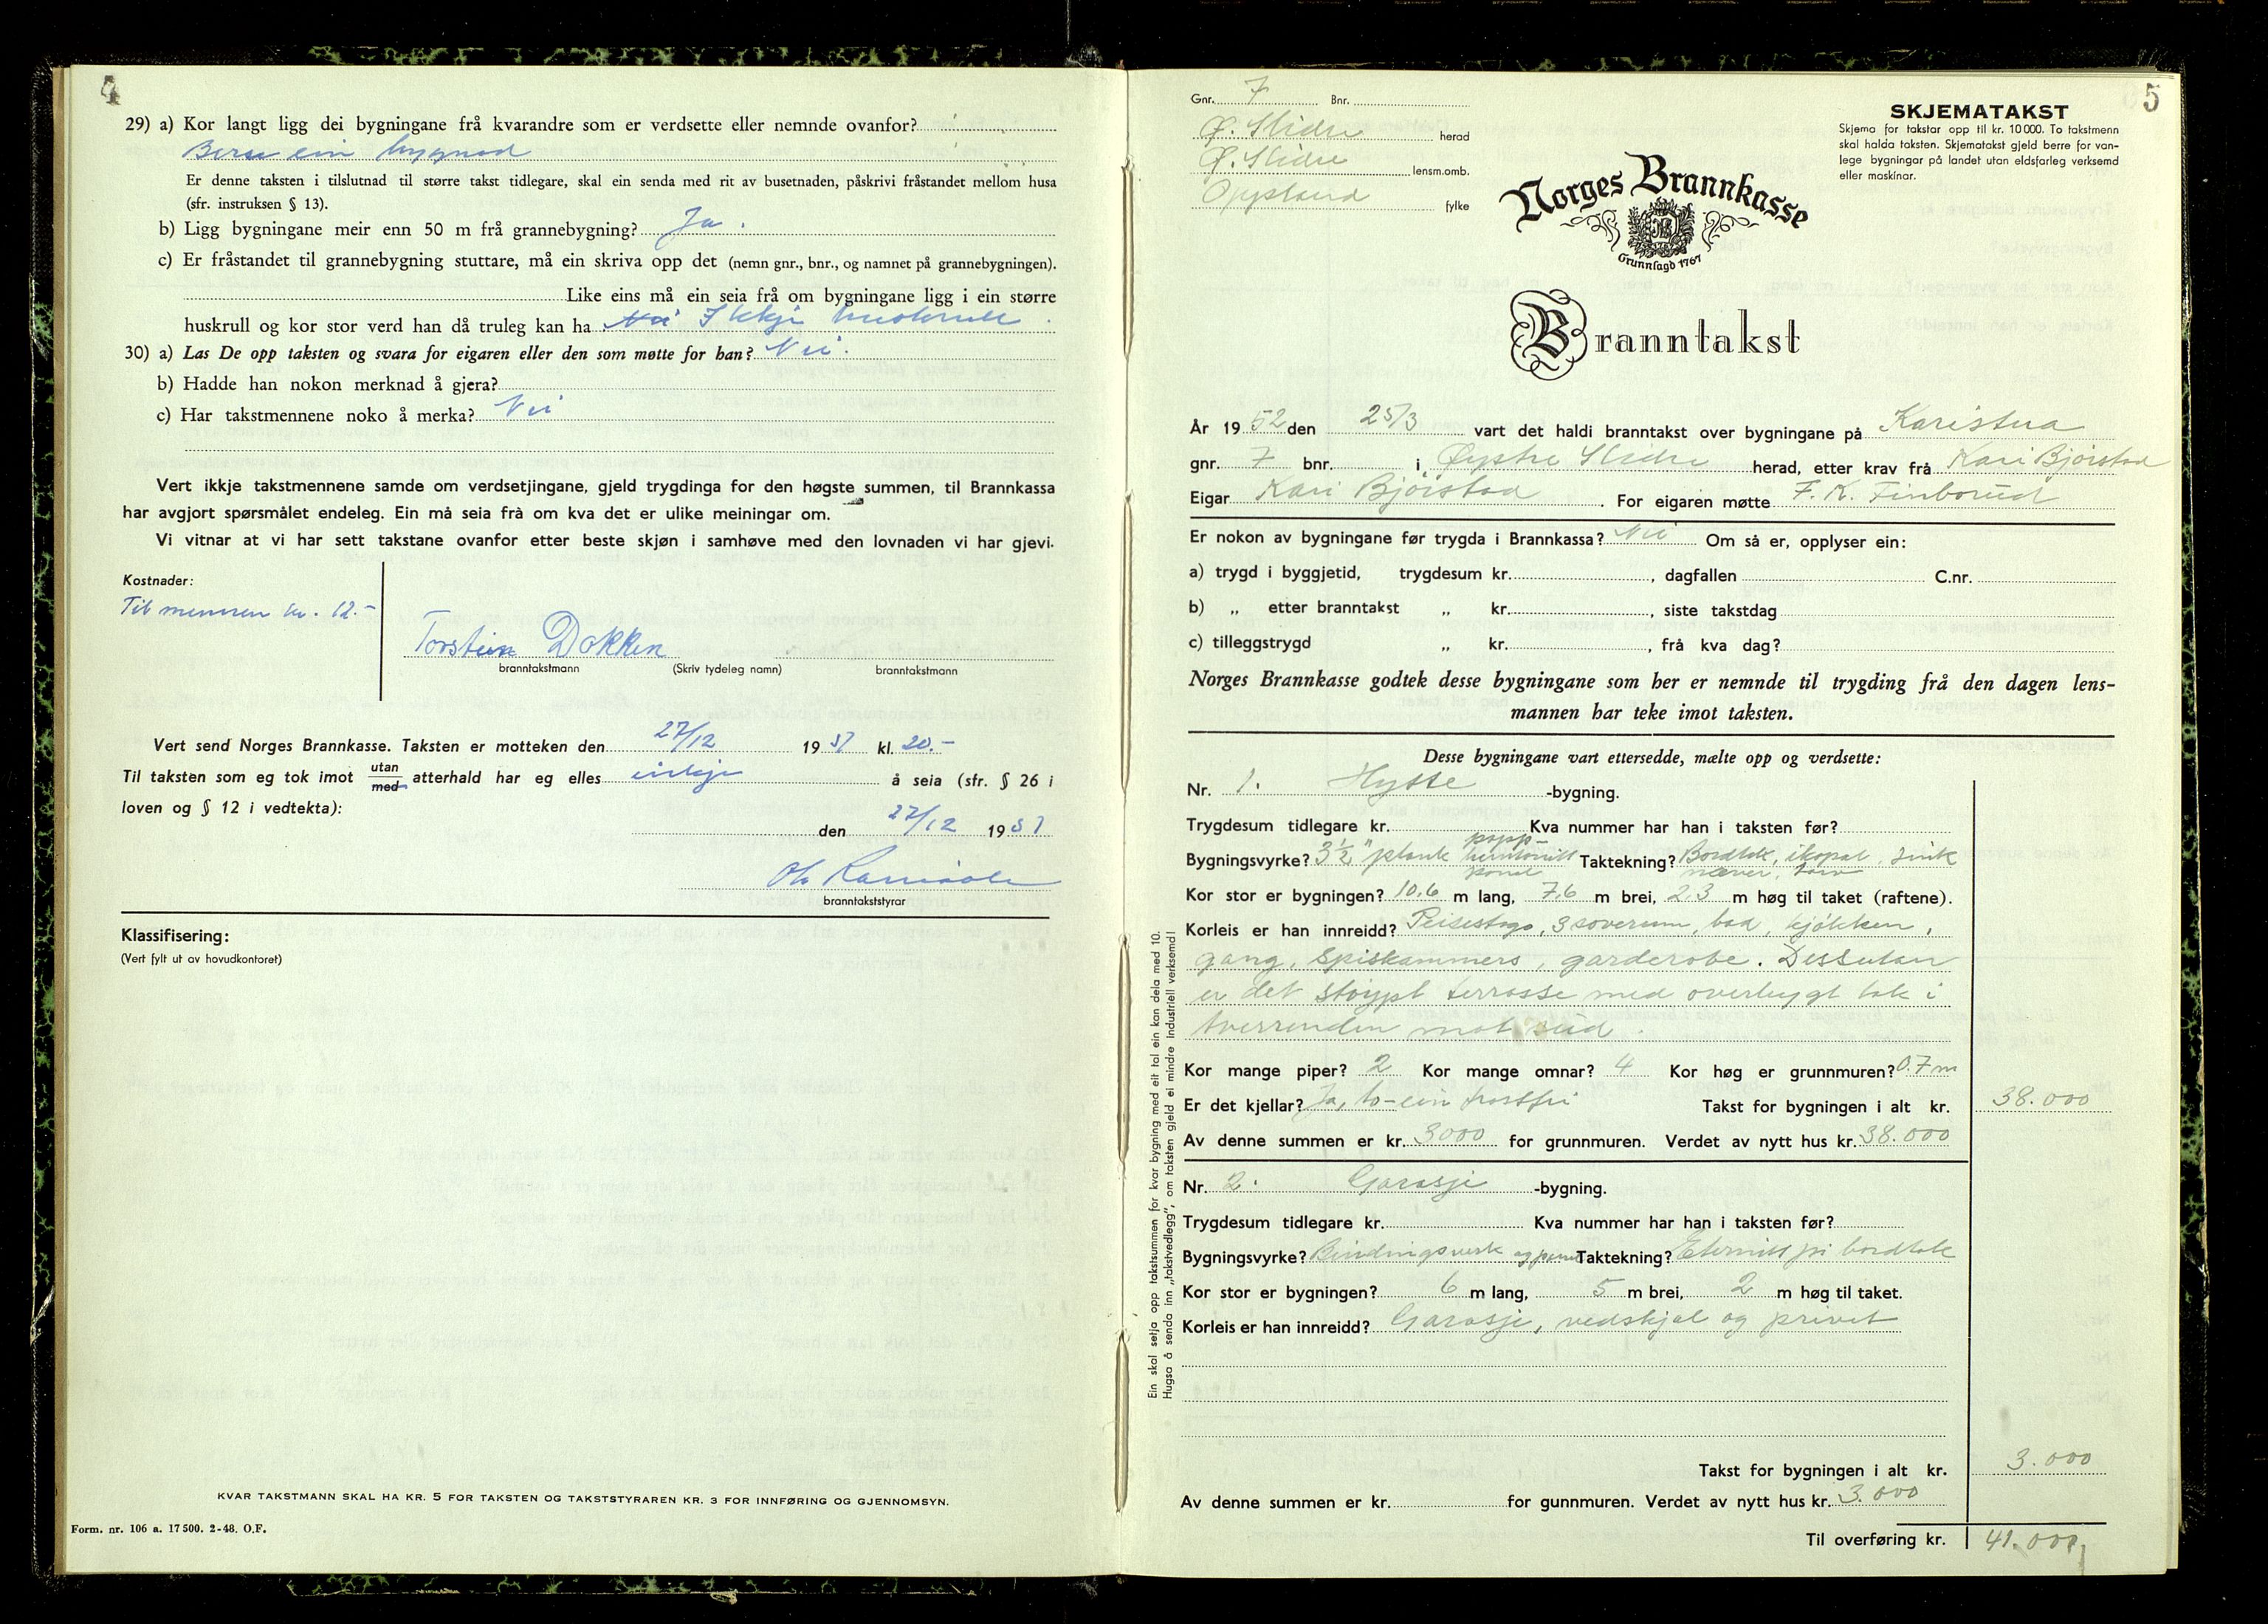 4
29) a) Kor langt ligg dei bygningane frå kvarandre som er verdsette eller nemnde ovanfor?
Berre ein bygnad
Er denne taksten i tilslutnad til større takst tidlegare, skal ein senda med rit av busetnaden, påskrivi fråstandet mellom husa
(sfr. instruksen § 13).
b) Ligg bygningane meir enn 50 m frå grannebygning? Ja.
c) Er fråstandet til grannebygning stuttare, må ein skriva opp det (nemn gnr., bnr., og namnet på grannebygningen).
Like eins må ein seia frå om bygningane ligg i ein større
huskrull og kor stor verd han då truleg kan ha Nei Ikkje huskrull.
30) a) Las De opp taksten og svara for eigaren eller den som møtte for han? Nei.
b) Hadde han nokon merknad å gjera?
c) Har takstmennene noko å merka? Nei
Vert ikkje takstmennene samde om verdsetjingane, gjeld trygdinga for den høgste summen, til Brannkassa
har avgjort spørsmålet endeleg. Ein må seia frà om kva det er ulike meiningar om.
Vi vitnar at vi har sett takstane ovanfor etter beste skjøn i samhøve med den lovnaden vi har gjevi.
Kostnader:
Til mennen kr. 12.-
Torstein Dokken
branntakstmann (Skriv tydeleg namn) branntakstmann
Vert send Norges Brannkasse. Taksten er motteken den 27/12 1951 kl. 20.-
Til taksten som eg tok imot utan/med atterhald har eg elles inkje å seia (sfr. § 26 i
loven og § 12 i vedtekta):
den 27/12 1951
branntakststyrar
Klassifisering:
(Vert fylt ut av hovudkontoret)
KVAR TAKSTMANN SKAL HA KR. 5 FOR TAKSTEN OG TAKSTSTYRAREN KR. 3 FOR INNFØRING OG GJENNOMSYN.
Form. nr. 106 a. 17 500. 2-48. O.F.
5
Gnr. 7 Bnr.
Ø. Slidre herad
Ø. Slidre lensm.omb.
Oppland fylke
SKJEMATAKST
Skjema for takstar opp til kr. 10 000. To takstmenn
skal halda taksten. Skjematakst gjeld berre for van-
lege bygningar på landet utan eldsfarleg verksemd
eller maskinar.
Norges Brannkasse
Grunnlagd 1767
Branntakst
År 1952 den 25/3 vart det haldi branntakst over bygningane på Karistua
gnr. 7 bnr. i Øystre Slidre herad, etter krav frå Kari Bjørstad
Eigar Kari Bjørstad. For eigaren møtte F. K. Finborud
Er nokon av bygningane før trygda i Brannkassa? Nei Om så er, opplyser ein:
a) trygd i byggjetid, trygdesum kr. , dagfallen C.nr.
b) „ etter branntakst „ kr. , siste takstdag
c) tilleggstrygd „ kr. , frå kva dag?
Norges Brannkasse godtek desse bygningane som her er nemnde til trygding frå den dagen lens-
mannen har teke imot taksten.
Desse bygningane vart ettersedde, mælte opp og verdsette:
Nr. 1. Hytte -bygning.
Trygdesum tidlegare kr. Kva nummer har han i taksten før?
Bygningsvyrke? 3½" plank papp- panel Taktekning? Bordtak, ikopal, sink
næver, torv
Kor stor er bygningen? 10.6 m lang, 7.6 m brei, 2.3 m høg til taket (raftene).
Korleis er han innreidd? Peisestogo, 3 soverum, bad, kjøkken,
gang, spiskammers, garderobe. Dessutan
er det støypt terrasse med overbygt tak i
tverrenden mot sud.
Kor mange piper? 2 Kor mange omnar? 4 Kor høg er grunnmuren? 0.7 m
Er det kjellar? Ja, to-ein frostfri Takst for bygningen i alt kr. 38.000
Av denne summen er kr. 3000 for grunnmuren. Verdet av nytt hus kr. 38.000
Nr. 2. Garasje -bygning.
Trygdesum tidlegare kr. Kva nummer har han i taksten før?
Bygningsvyrke? Bindingsverk og panel Taktekning? Eternitt på bordtak
Kor stor er bygningen? 6 m lang, 5 m brei, 2 m høg til taket.
Korleis er han innreidd? Garasje, vedskjel og privet
Takst for bygningen i alt kr. 3.000
Av denne summen er kr. for gunnmuren. Verdet av nytt hus kr. 3.000
Til overføring kr. 41.000
Ein skal setja opp takstsummen for kvar bygning med eit tal ein kan dela med 10.
Hugsa å senda inn „takstvedlegg", om taksten gjeld ei mindre industriell verksemd!